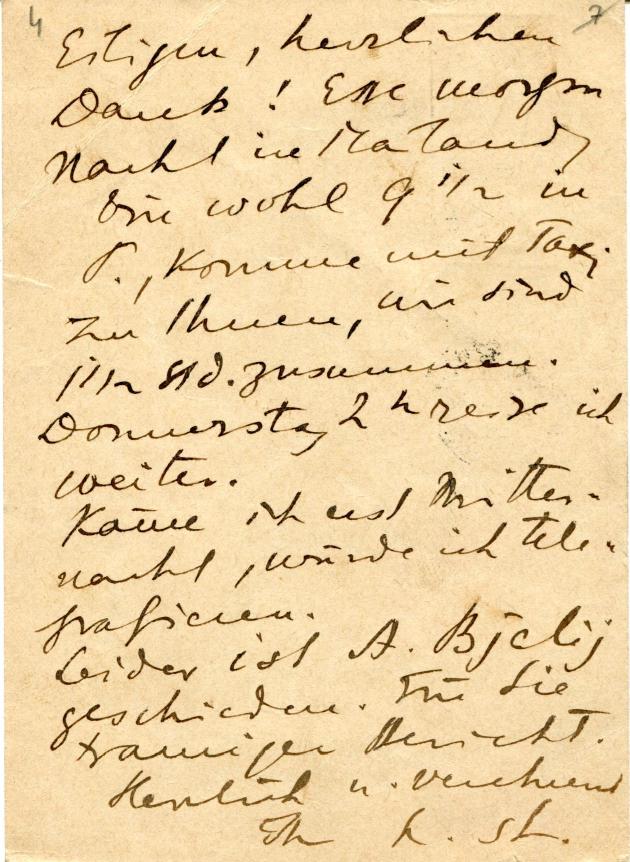 4 7
Eiligen, herzlichen
Dank! Esse morgen
Nacht in Mailand,
bin wohl 9 1/2 in
P., komme mit Taxi
zu Ihnen, wir sind
1 1/2 Std. zusammen.
Donnerstag 2 h reise ich
weiter.
Käme ich erst Mitter-
nacht, würde ich tele-
grafieren.
Leider ist A. Bjelij
geschieden. Für Sie
trauriger Bericht.
Herzlich u. verehrend
Ihr K. St.